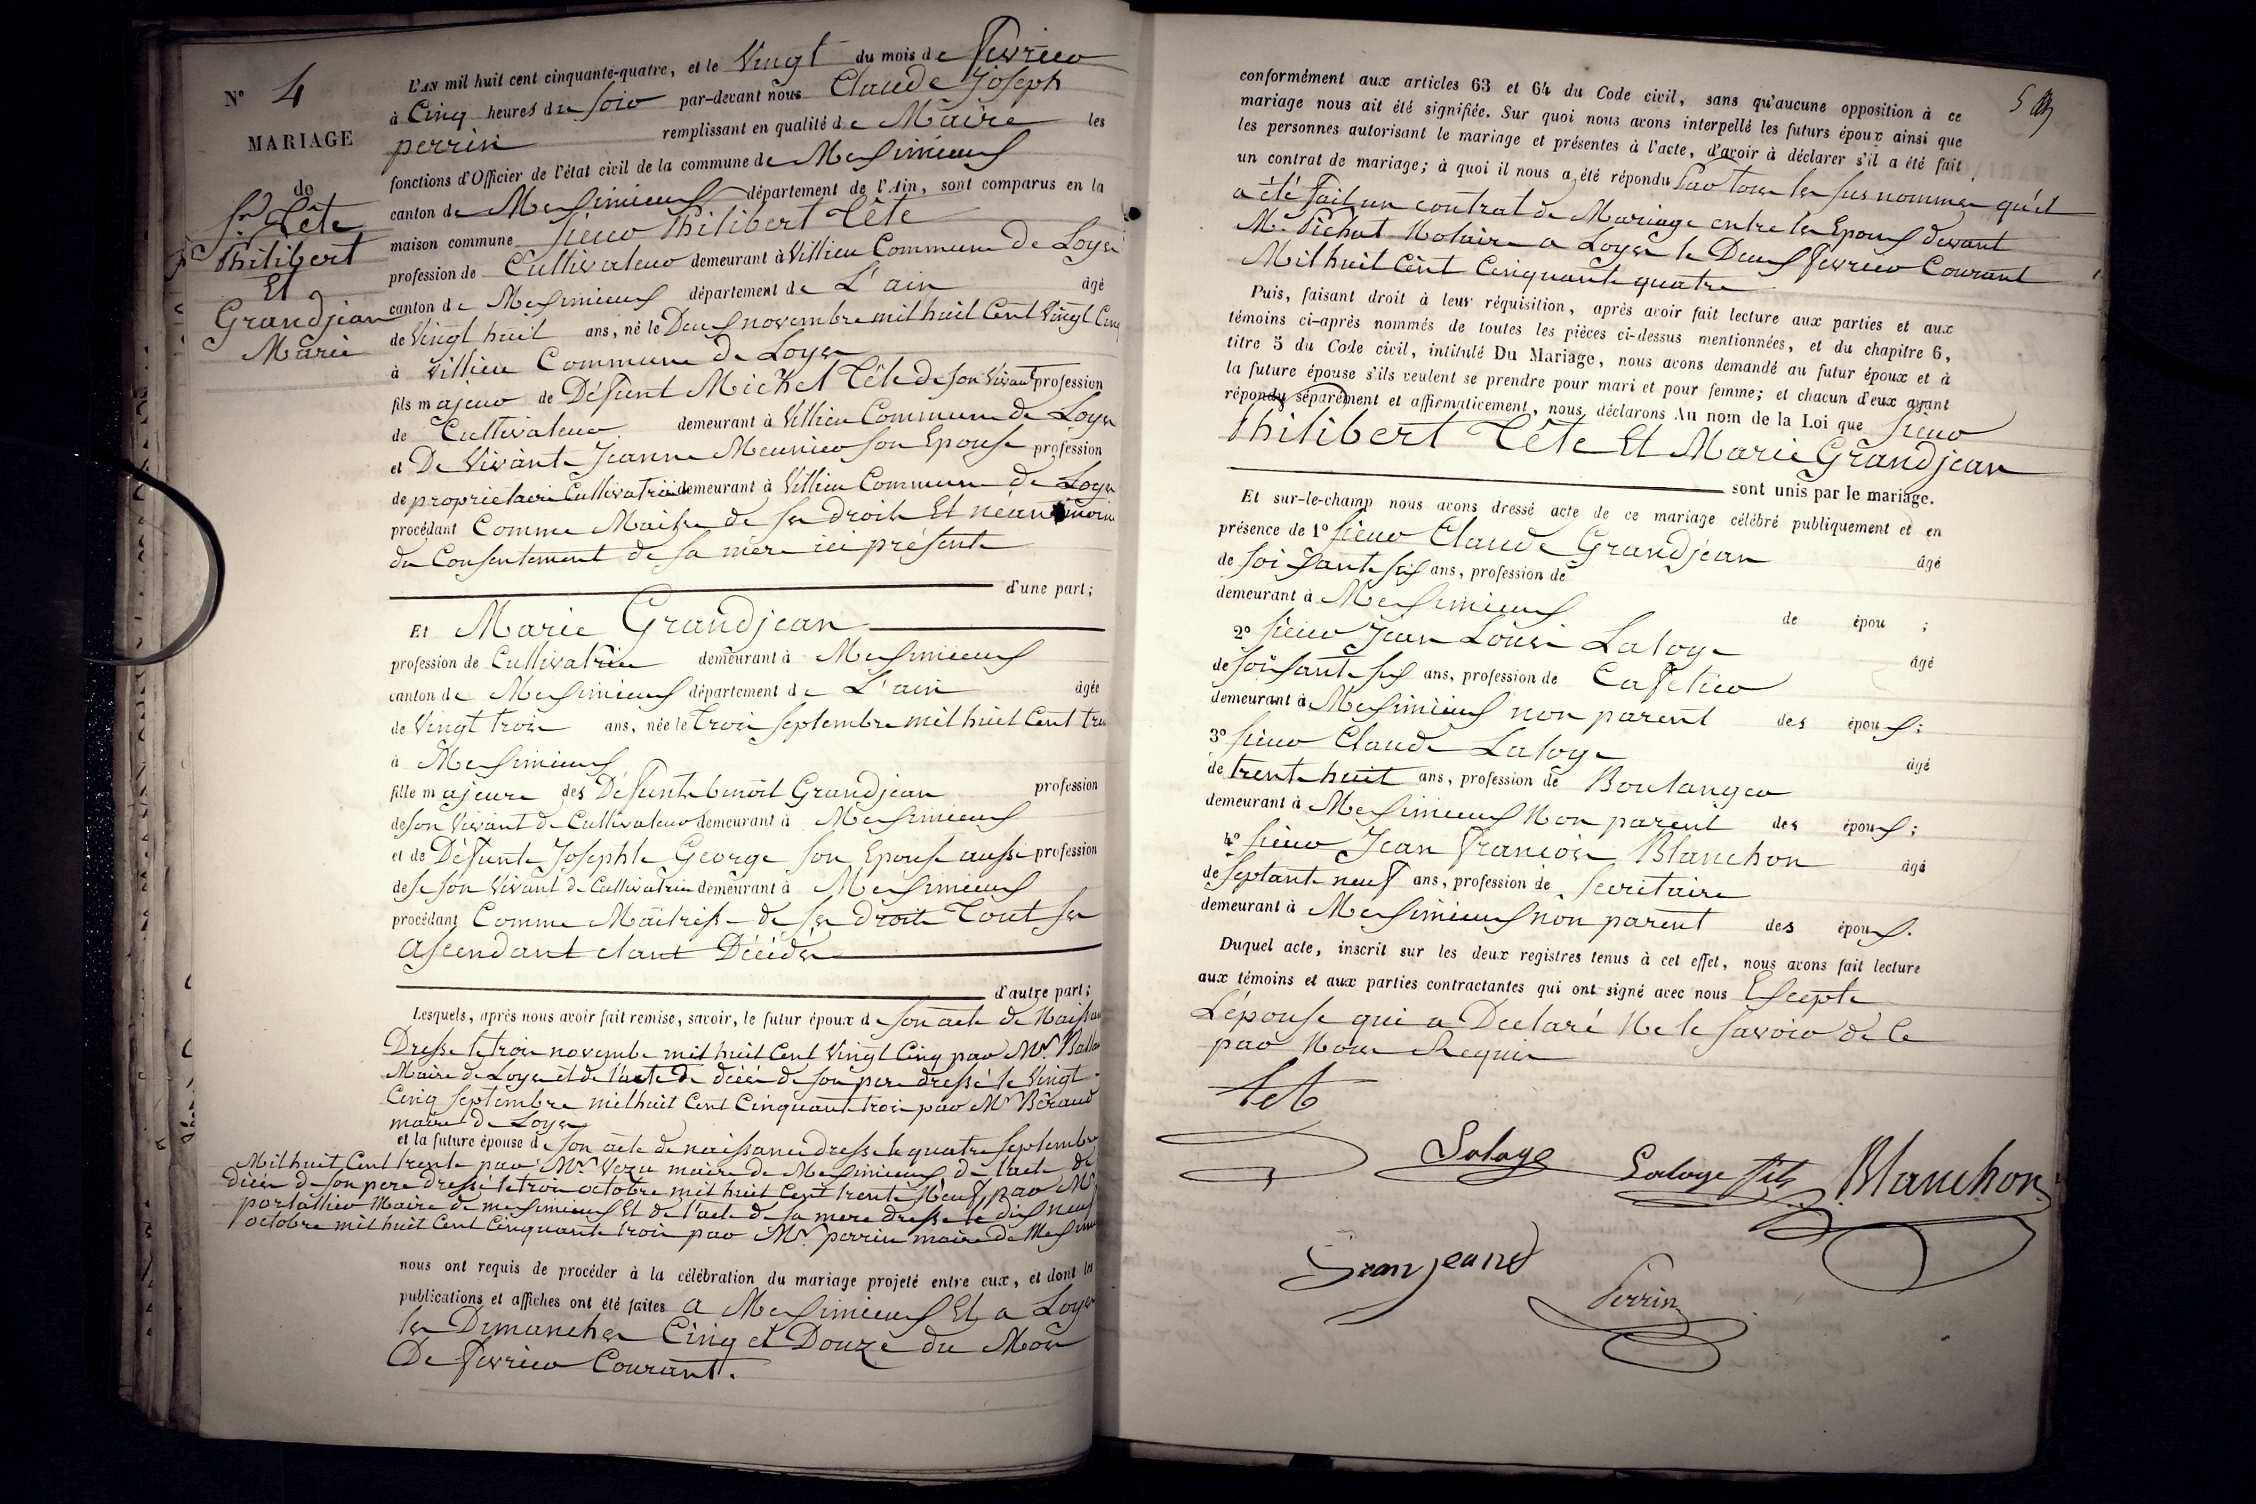 N° 4
MARIAGE
de
Sr Tête
Philibert
Et
Grandjean
Marie
L'AN mil huit cent cinquante-quatre, et le Vingt du mois de Fevrier
à Cinq heures du Soir par-devant nous Claude Joseph
perrin remplissant en qualité de Maire les
fonctions d'Officier de l'état civil de la commune de Meximieux
canton de Meximieux département de l'Ain, sont comparus en la
maison commune Sieur Philibert Tête
profession de Cultivateur demeurant à Villieu Commune De Loyes
canton de Meximieux département de L'ain âgé
de Vingt huit ans, né le Deux novembre mil huit Cent Vingt Cinq
à Villieu Commune de Loyes
fils majeur de Défunt Michel Tête de son Vivant profession
de Cultivateur demeurant à Villieu Commune de Loyes
et De Vivante Jeanne Meunier son Epouse profession
de propriétaire Cultivatrice demeurant à Villieu Commune de Loyes
procédant Comme Maitre de ses droits Et néanmoins
du Consentement de sa mère ici présente
d'une part;
Et Marie Grandjean
profession de Cultivatrice demeurant à Meximieux
canton de Meximieux département de L'ain âgée
de Vingt trois ans, née le trois Septembre mil huit Cent trente
à Meximieux
fille majeure des Défunts benoit Grandjean profession
de son Vivant de Cultivateur demeurant à Meximieux
et de Défunte Josephte George son Epouse aussi profession
de se son Vivant de Cultivatrice demeurant à Meximieux
procédant Comme Maîtresse de ses droits Tout ses
Ascendant etant Décédés
d'autre part;
Lesquels, après nous avoir fait remise, savoir, le futur époux de son acte de Naissance
Dresse le trois novembe mil huit Cent Vingt Cinq par Mr.
Maire de Loyes et de l'acte de décés de son pere dressé le Vingt
Cinq Septembre mil huit Cent Cinquante trois par Mr Béraud
maire de Loyes
et la future épouse de son acte de naissance dresse le quatre Septembre
Mil huit Cent trente par Mr. Vezu maire de Meximieux de l'acte de
décés de son pere dressé le trois octobre mil huit Cent trente Neuf par Mr
portallier Maire de meximieux Et de l'acte de sa mere dresse le dix neuf
octobre mil huit Cent Cinquante trois par Mr. perrin maire de Meximieux
nous ont requis de procéder à la célébration du mariage projeté entre eux, et dont les
publications et affiches ont été faites a Meximieux Et a Loyes
les Dimanches Cinq et Douze du Mois
De Fevrier Courant.
conformément aux articles 63 et 64 du Code civil, sans qu'aucune opposition à ce
mariage nous ait été signifiée. Sur quoi nous avons interpellé les futurs époux ainsi que
les personnes autorisant le mariage et présentes à l'acte, d'avoir à déclarer s'il a été fait
un contrat de mariage; à quoi il nous a été répondu Par tous les sus nommes qu'il
a été Fait un contrat de Mariage entre les Epoux devant
Me Pichat Notaire a Loyes le Deux Fevrier Courant
Mil huit Cent Cinquante quatre
Puis, faisant droit à leur réquisition, après avoir fait lecture aux parties et aux
témoins ci-après nommés de toutes les pièces ci-dessus mentionnées, et du chapitre 6,
titre 5 du Code civil, intitulé Du Mariage, nous avons demandé au futur époux et à
la future épouse s'ils veulent se prendre pour mari et pour femme; et chacun d'eux ayant
répondu séparément et affirmativement, nous déclarons Au nom de la Loi que Sieur
Philibert Tête Et Marie Grandjean
sont unis par le mariage.
Et sur-le-champ nous avons dressé acte de ce mariage célébré publiquement et en
présence de 1° Sieur Claude Grandjean âgé
de soixante six ans, profession de
demeurant à Meximieux de épou ;
2° Sieur Jean Louis Laloge âgé
de soixante six ans, profession de Cafetier
demeurant à Meximieux non parent des époux;
3° Sieur Claude Laloge âgé
de trente huit ans, profession de Boulanger
demeurant à Meximieux Non parent des époux;
4° Sieur Jean François Blanchon âgé
de septante neuf ans, profession de Secritaire
demeurant à Meximieux non parent des époux.
Duquel acte, inscrit sur les deux registres tenus à cet effet, nous avons fait lecture
aux témoins et aux parties contractantes qui ont signé avec nous Excepte
L'épouse qui a Declaré Ne le savoir de Ce
par Nous Requis
tete
Laloge Laloge fils Blanchon
Granjeand
Perrin